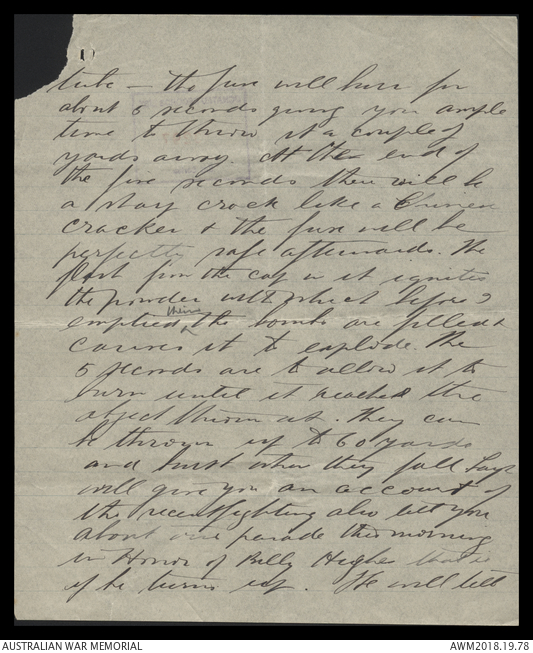 tube – the fuse will burn for
about 5 seconds giving you ample
time to throw it a couple of
yards away. At the end of
the five seconds there will be
a sharp crack like a Chinese
cracker & the fuse will be
perfectly safe afterwards. The
flash from the cap as it ignites
the powder with which before I
emptied them the bombs are filled &
causes it to explode. The
5 seconds are to allow it to
burn until it reached the
object thrown at. They can
be thrown up to 60 yards
and burst when they fall
will give you an account of
the recent fighting also tell you
about our parade this morning
in Honor of Billy Hughes that is
if he turns up. He will tell
AUSTRALIAN WAR MEMORIAL
AWM2018.19.78